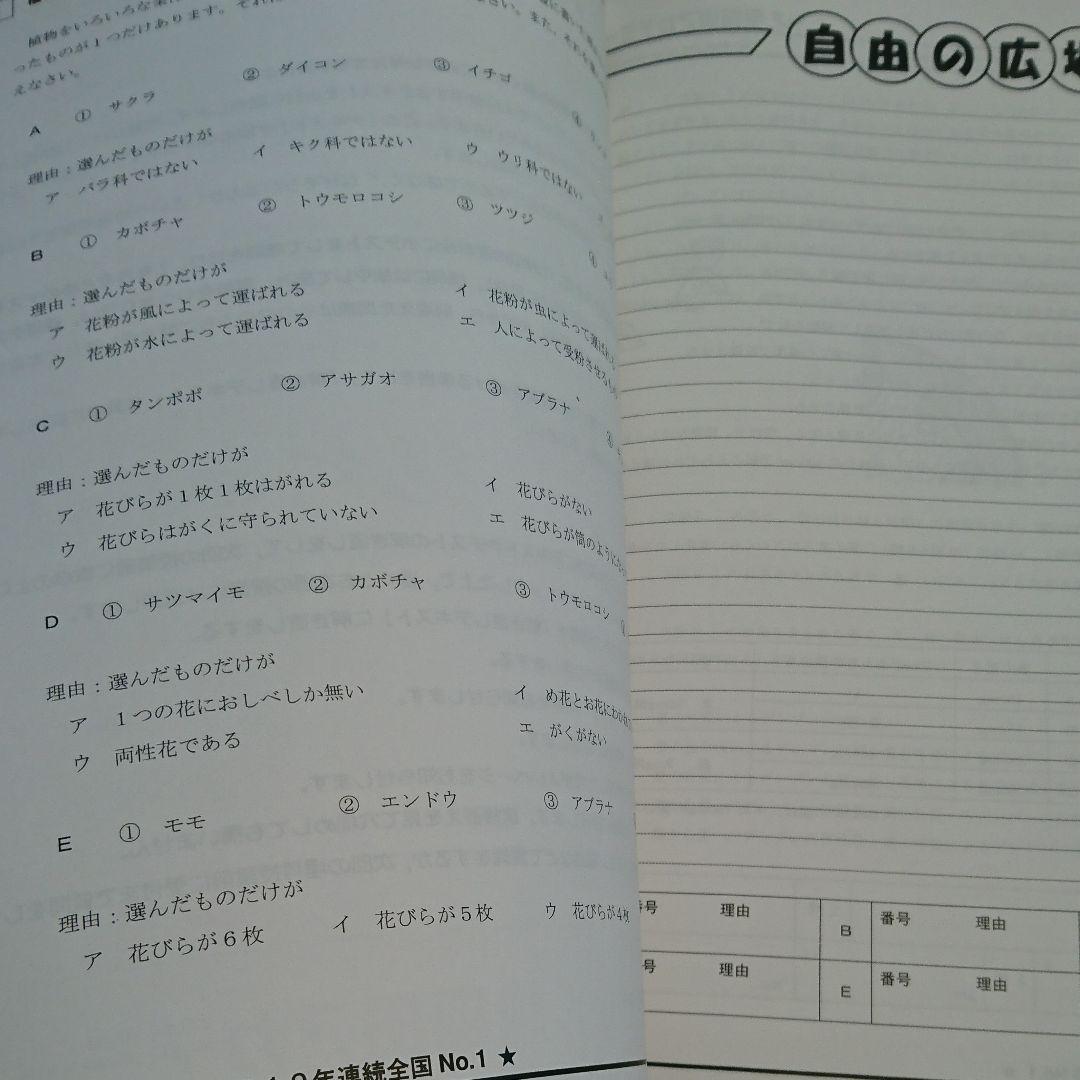 植物をいろいろな
ったものが１つだけあります。それ
えなさい。
さい。また、それを
A ① サクラ ② ダイコン ③ イチゴ ④
理由：選んだものだけが
ア バラ科ではない イ キク科ではない ウ ウリ科ではない
B ① カボチャ ② トウモロコシ ③ ツツジ ④
理由：選んだものだけが
ア 花粉が風によって運ばれる イ 花粉が虫によって運ばれ
ウ 花粉が水によって運ばれる エ 人によって受粉させる
C ① タンポポ ② アサガオ ③ アブラナ
理由：選んだものだけが
ア 花びらが１枚１枚はがれる イ 花びらがない
ウ 花びらはがくに守られていない エ 花びらが筒のように
D ① サツマイモ ② カボチャ ③ トウモロコシ
理由：選んだものだけが
ア １つの花におしべしか無い イ め花とお花にわか
ウ 両性花である エ がくがない
E ① モモ ② エンドウ ③ アブラナ
理由：選んだものだけが
ア 花びらが６枚 イ 花びらが５枚 ウ 花びらが４枚
年連続全国 No.1 ★
自由の広
号 理由 B 番号 理由
号 理由 E 番号 理由